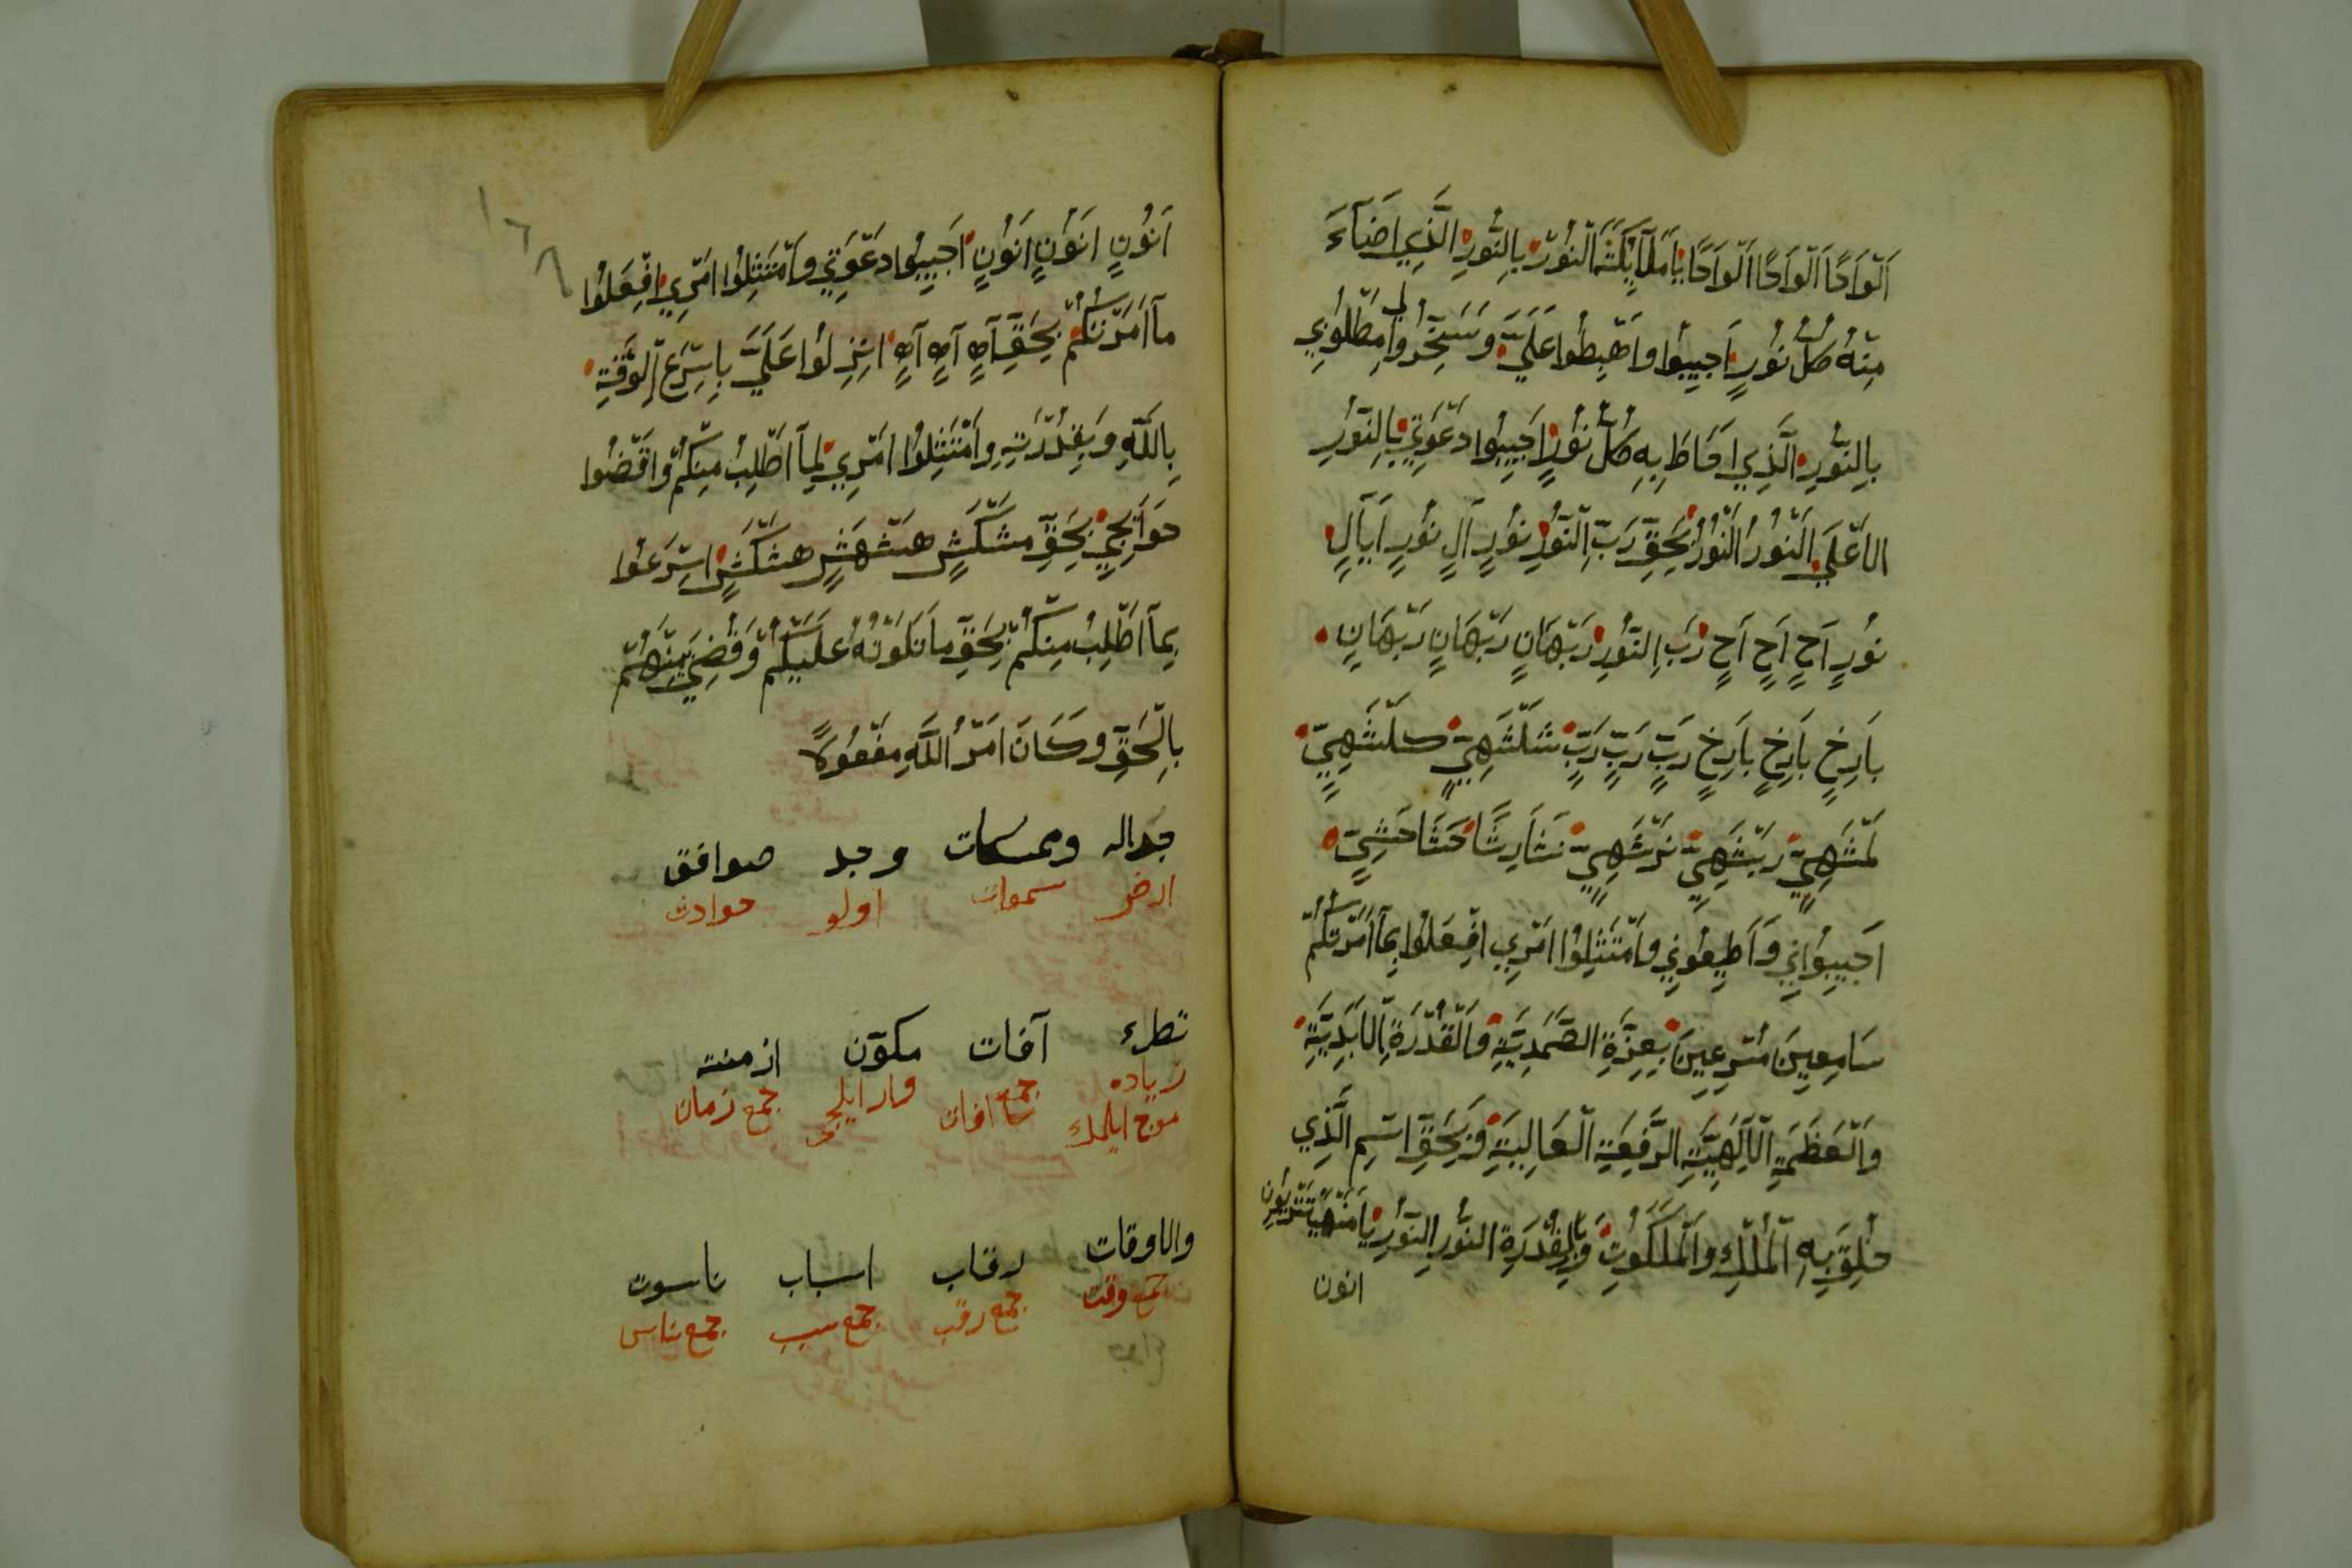 اَلْوَاحًا اَلْوَاحًا اَلْوَاحًا يَا مَلَآئِكَةَ النُّوْرِ بِالنُّوْرِ الَّذِي اَضَآءَ
مِنْهُ كُلُّ نُوْرٍ اَجِيبُوا وَاَهْبِطُوا عَلَيَّ وَسَخِّرُوا لِي مَطْلُوبِي
بِالنُّوْرِ الَّذِي اَحَاطَ بِهِ كُلُّ نُوْرٍ اَجِيبُوا دَعْوَتِي بِالنُّوْرِ
الاَعْلَي النُّوْرُ النُّوْرُ بِحَقِّ رَبِّ النُّوْرِ نُوْرٍ آلٍ نُوْرٍ اَيَآلٍ
نُوْرٍ اَحٍ اَحٍ اَحٍ رَبِّ النُّوْرِ رَبْهَانٍ رَبْهَانٍ رَبْهَانٍ
بَارِخٍ بَارِخٍ بَارِخٍ رَبٍّ رَبٍّ رَبٍّ شَلْشَهِيٍّ كَلْشَهِيٍّ
اَجِيبُوانِي وَاَطِيعُونِي وَاَمْتَثِلُوا اَمْرِي اِفْعَلُوا بِمَآ اَمَرْتُكُمْ
سَامِعِينَ مُسْرِعِينَ بِعِزَّةِ الصَّمَدِيَّةِ وَالْقُدْرَةِ الاَبَدِيَّةِ
وَالْعَظَمَةِ الْاِلَهِيَّةِ الرَّفِعَةِ الْعَالِيَةِ وَبِحَقِّ اسْمِ الَّذِي
خُلِقَ بِهِ الْمُلْكِ وَالْمَلَكُوْتِ وَبِالْقُدْرَةِ النُّوْرِ النُّوْرِ
انون
اَنُوْنٍ اَنُوْنٍ اَنُوْنٍ اَجِيبُوا دَعْوَتِي وَاَمْتَثِلُوا اَمْرِي اِفْعَلُوا
مَآ اَمَرْتُكُمْ بِحَقِّ آهٍ آهٍ آهٍ اِنْزِلُوا عَلَيَّ بِاَسْرَعِ الْوَقْتِ
بِاللَّهِ وَبِقُدْرَتِهِ وَاَمْتَثِلُوا اَمْرِي لِمَآ اَطْلُبُ مِنْكُمْ وَاَقْضُوا
حَوَآئِجِي بِحَقِّ مَشْكَشٍ هَشْهَشٍ هَشْكَشٍ اَسْرَعُوا
بِمَآ اَطْلُبُ مِنْكُمْ بِحَقِّ مَا تَلَوْتُهُ عَلَيْكُمْ وَقُضِيَ بَيْنَهُمْ
بِالْحَقِّ وَكَانَ اَمْرُ اللَّهِ مَفْعُولاً
وجد صوافق
ارض سموات اولو حوادث
تطرء آفات مكوّن ازمنه
زياده جمع وار ايليجى جمع زمان
والاوقات رقاب اسباب ناسوت
جمع وقت جمع رقب جمع سبب جمع ناس